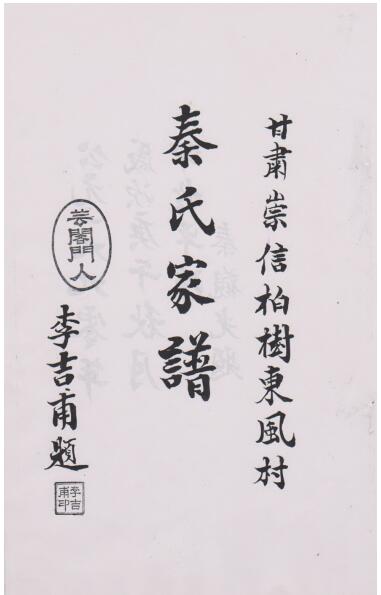 甘肅崇信柏樹東風村
秦氏家譜
芸閣門人
李吉甫題
李吉甫印